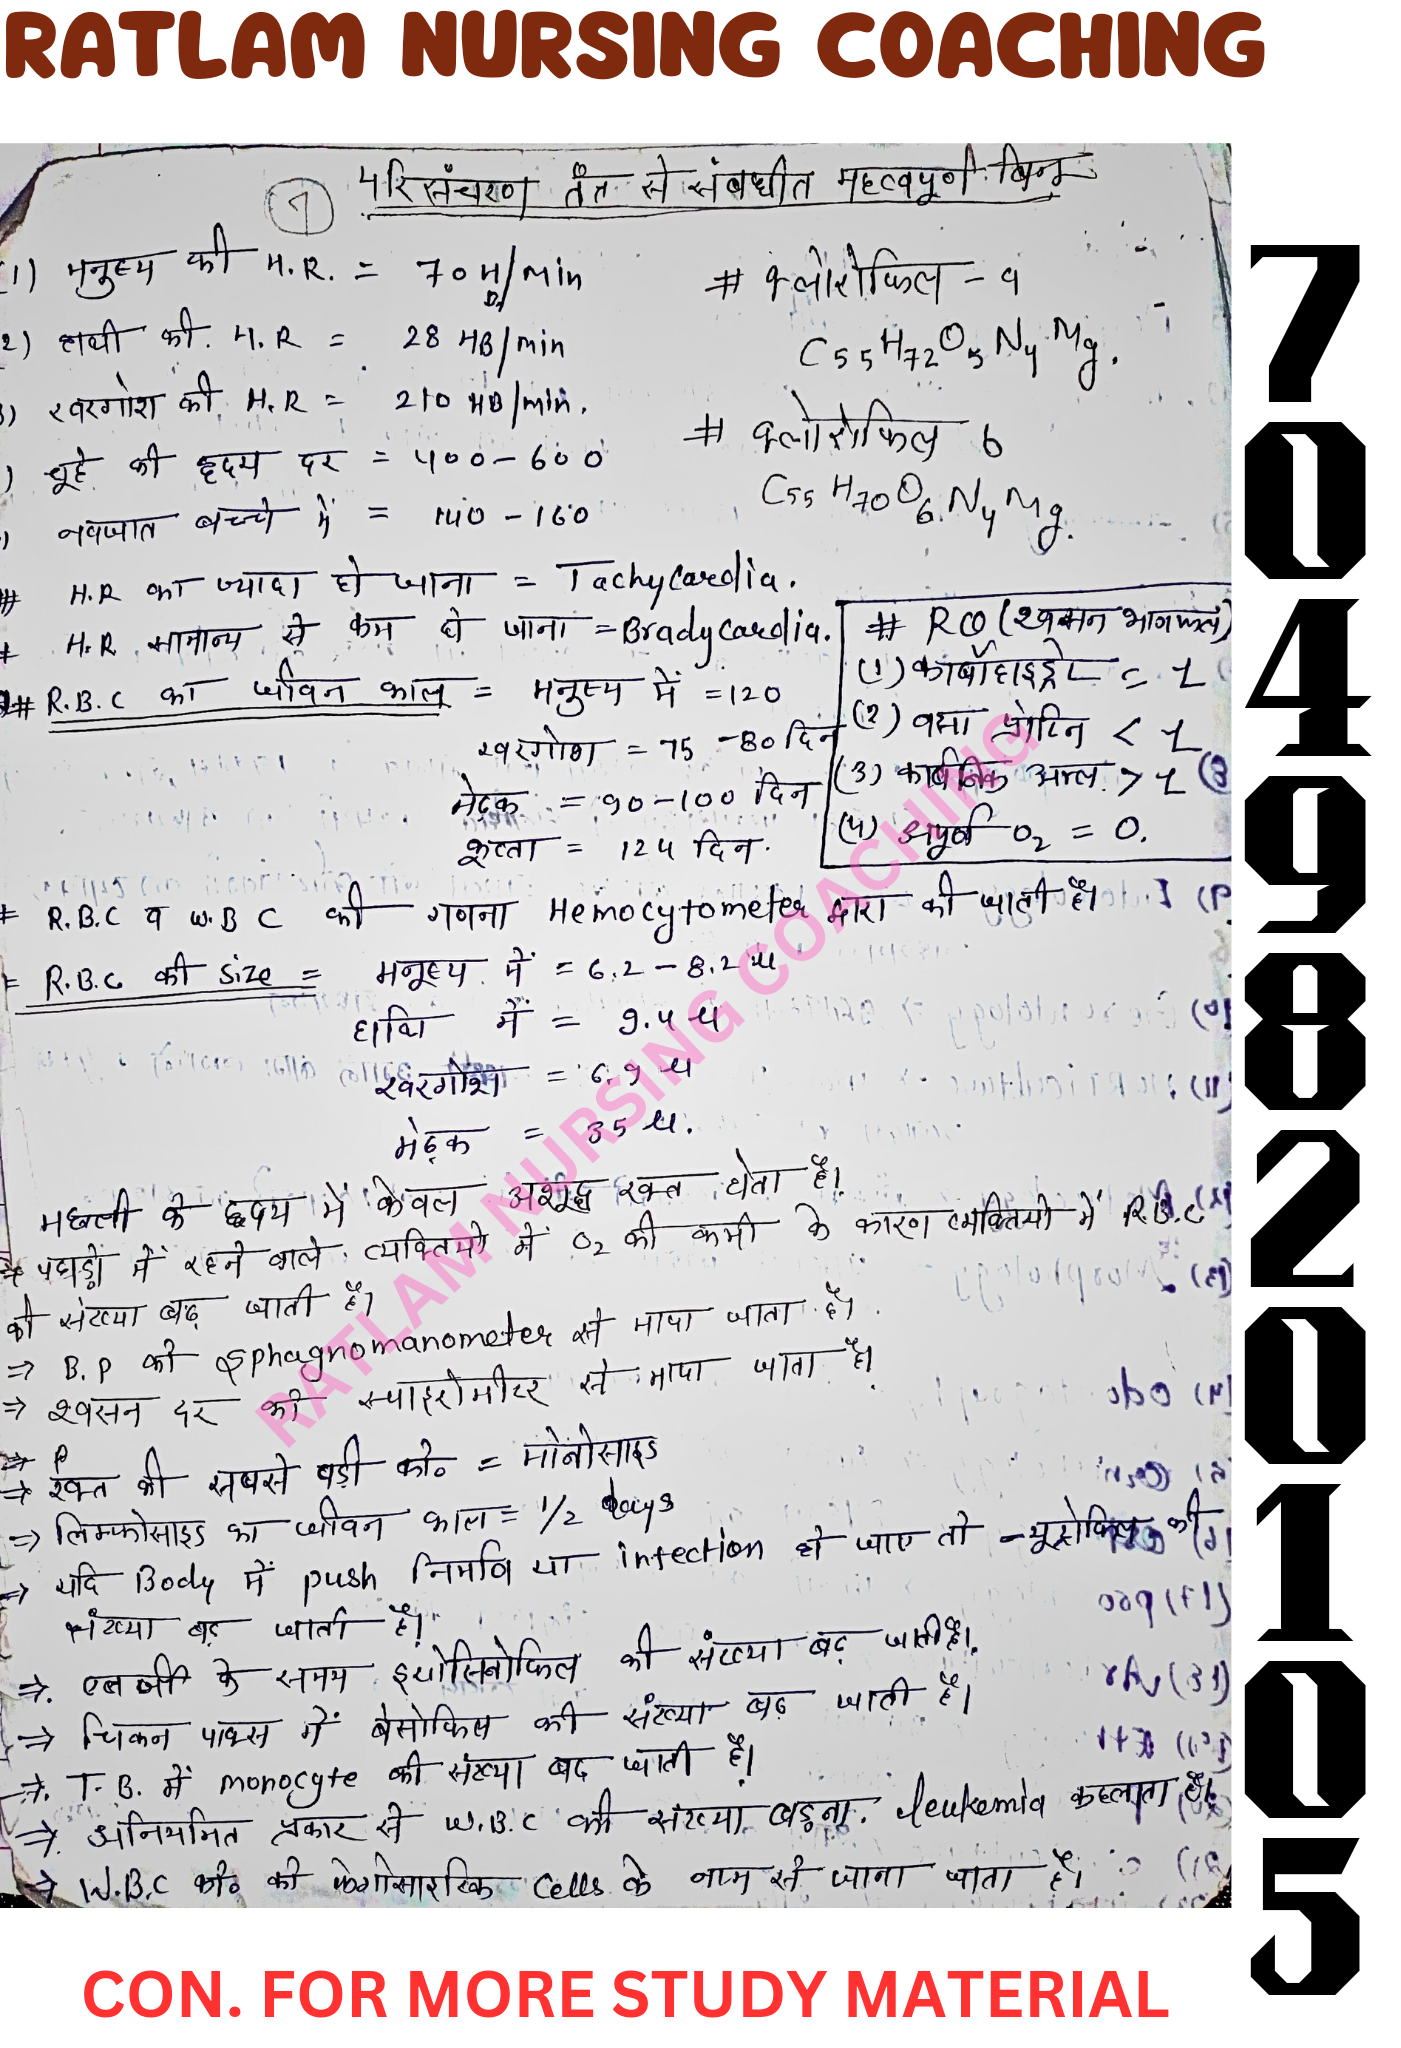 RATLAM NURSING COACHING
7049820105
7
परिसंचरण तंत्र से संबधीत महत्वपूर्ण बिन्दू
1) मनुष्य की H.R. = 70 H/min
B
# क्लोरोफिल - a
C55H72O5N4Mg.
2) हाथी की H.R = 28 HB/min
3) खरगोश की H.R = 210 HB/min.
# क्लोरोफिल b
C55H70O6N4Mg.
) चूहे की हृदय दर = 400-600
) नवजात बच्चे में = 140-160
# H.R का ज्यादा हो जाना = Tachycardia.
# H.R सामान्य से कम हो जाना = Bradycardia.
# R.B.C का जीवन काल = मनुष्य में = 120
खरगोश = 75-80 दिन
मेढ़क = 90-100 दिन
कुत्ता = 124 दिन.
# RQ (श्वसन भागफल)
(1) कार्बोहाइड्रेट = 1
(2) वसा प्रोटिन < 1
(3) कार्बनिक अम्ल > 1
(4) अपूर्ण O2 = 0.
# R.B.C व W.B.C की गणना Hemocytometer द्वारा की जाती है।
# R.B.C की size = मनुष्य में = 6.2-8.2 µ
हाथि में = 9.4 µ
खरगोश = 6.9 µ
मेढ़क = 35 µ.
मछली के हृदय में केवल अशुद्ध रक्त होता है।
⇒ पहाड़ो में रहने वाले व्यक्तियो में O2 की कमी के कारण व्यक्तियो में R.B.C
की संख्या बढ़ जाती है।
⇒ B.P को sphagnomanometer से मापा जाता है।
⇒ श्वसन दर को स्पाइरोमीटर से मापा जाता है।
⇒ रक्त की सबसे बड़ी को० = मोनोसाइड
⇒ लिम्फोसाइड का जीवन काल = 1/2 days
⇒ यदि Body में push निर्माव या infection हो जाए तो न्यूट्रोफिल की
संख्या बढ़ जाती है।
⇒. एलर्जी के समय इयोसिनोफिल की संख्या बढ़ जाती है।
⇒ चिकन पाक्स में बेसोफिल की संख्या बढ़ जाती है।
⇒. T.B. में monocyte की संख्या बढ़ जाती है।
⇒. अनियमित प्रकार से W.B.C की संख्या बढ़ना. leukemia कहलाता है।
⇒ W.B.C को० को फेगोसाइटिक cells के नाम से जाना जाता है।
RATLAM NURSING COACHING
CON. FOR MORE STUDY MATERIAL